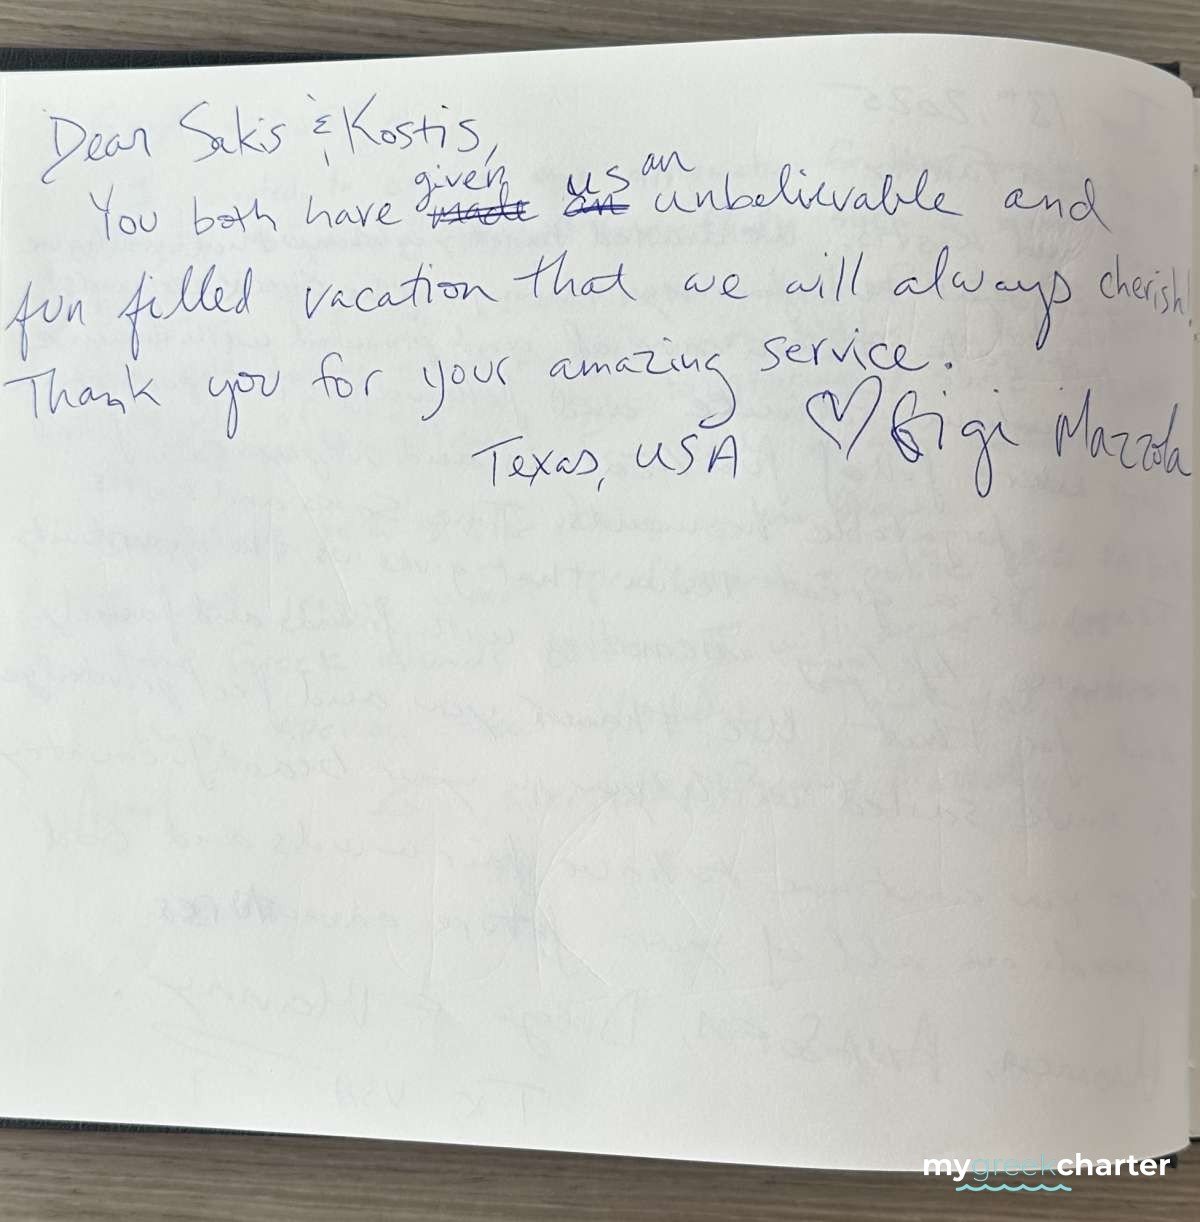 Dear Sakis & Kostis,
You both have given made us an an unbelievable and
fun filled vacation that we will always cherish!
Thank you for your amazing service.
♡ Gigi Mazzola
Texas, USA
mygreekcharter